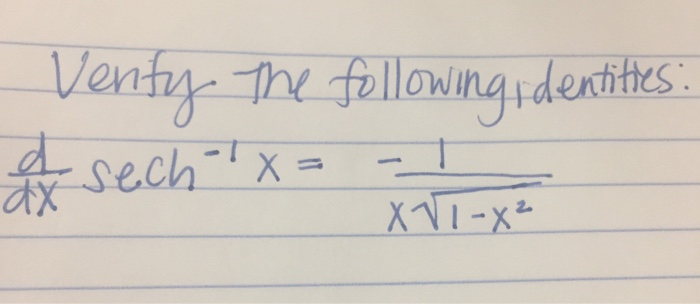 Verify the following identities:
d/dx sech⁻¹ x = - 1 / x√1-x²